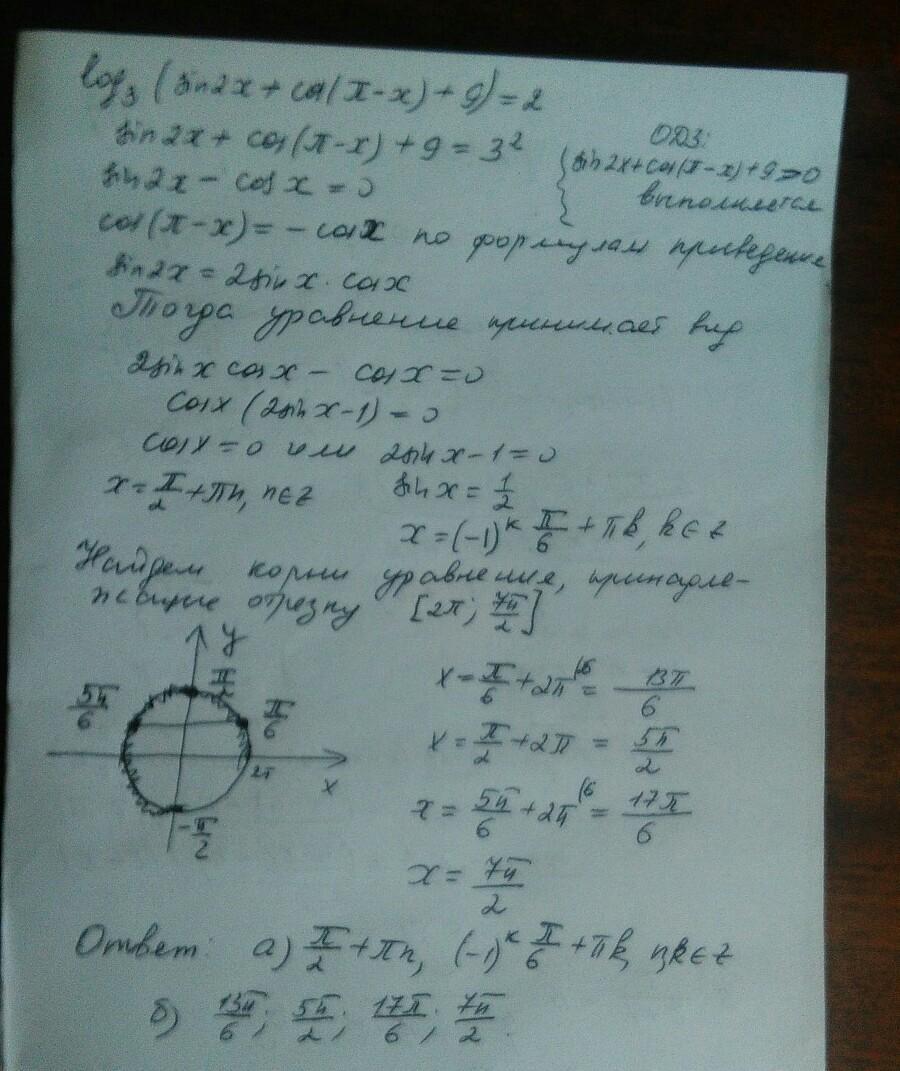 log₃ (sin2x + cos(π-x) + 9) = 2
sin2x + cos(π-x) + 9 = 3²
ОДЗ:
{ sin2x+cos(π-x)+9>0
выполняется
sin2x - cos x = 0
cos(π-x) = -cosx по формулам приведения
sin2x = 2sinx · cosx
Тогда уравнение принимает вид
2sinx cosx - cosx = 0
cosx (2sinx-1) = 0
cosx = 0 или 2sinx-1=0
x = π/2 + πn, n∈z
sinx = 1/2
x = (-1)ᵏ π/6 + πk, k∈z
Найдем корни уравнения, принадле-
жащие отрезку [2π; 7π/2]
y
π/2
5π/6
π/6
2π
x
-π/2
x = π/6 + 2π\6 = 13π/6
x = π/2 + 2π = 5π/2
x = 5π/6 + 2π\6 = 17π/6
x = 7π/2
Ответ: а) π/2 + πn, (-1)ᵏ π/6 + πk, n,k∈z
б) 13π/6; 5π/2; 17π/6; 7π/2.